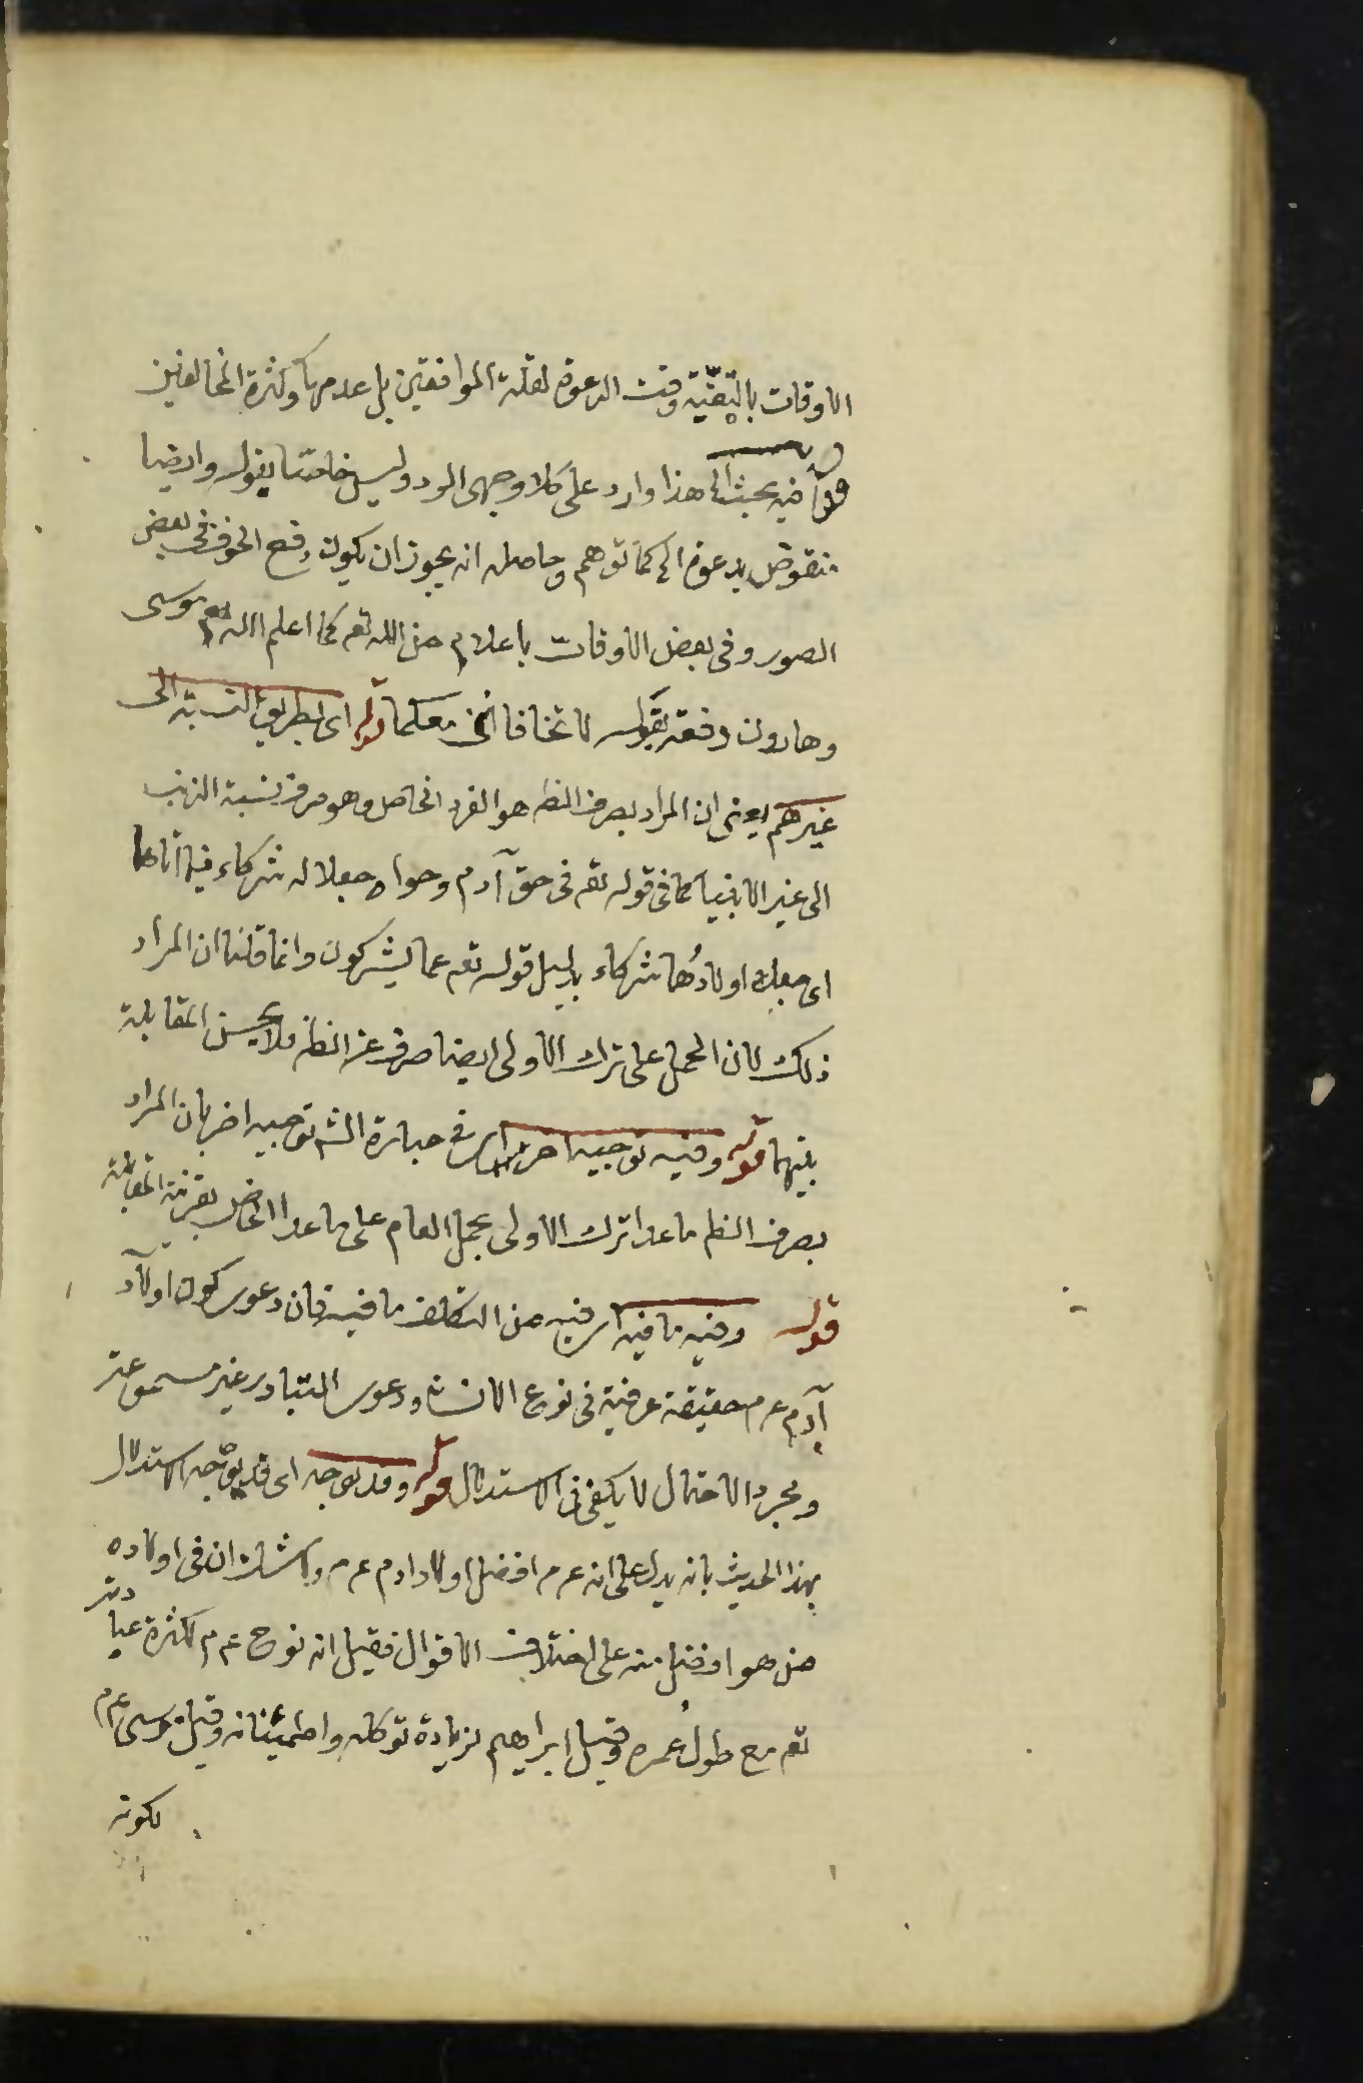 الاوقات بالتقيّة وقت الدعوة لقلة الموافقين بل عدمها وكثرة المخالفين
قوله فيه بحث الخ هذا وارد على كلا وجهى الرد وليس خاصّا بقوله وايضا
منقوض بدعوة الخ كما توهم وحاصله انه يجوز ان يكون دفع الخوف فى بعض
الصور وفى بعض الاوقات باعلام من الله تعه كما اعلم الله تعه موسى
وهارون دفعه بقوله لا تخافا اننى معكما قوله اى بطريق النسبة الى
غيرهم يعنى ان المراد بصرف الظه هو الفرد الخاص وهو صرف نسبة الذنب
الى غير الانبياء كما فى قوله تعه فى حق آدم وحواء جعلا له شركاء فيما آتاهما
اى جعل اولادُهما شركاء بدليل قوله تعه عما يشركون وانما قلنا ان المراد
ذلك لان الحمل على ترك الاولى ايضا صرف عن الظه فلا يحسن المقابلة
بينهما قوله وفيه توجيه اخر اى فى عبارة الشه توجيه اخر بان المراد
بصرف الظه ما عدا ترك الاولى بحمل العام على ما عدا الخاص بقرينة المقابلة
قوله وفيه ما فيه اى فيه من التكلف ما فيه فان دعوى كون اولاد
آدم عم حقيقة عرفية فى نوع الانسان ودعوى التبادر غير مسموعة
ومجرد الاحتمال لا يكفى فى الاستدلال قوله وقد يوجه اى قد يوجّه الاستدلال
بهذا الحديث بانه يدل على انه عم افضل اولاد ادم عم ولا شك ان فى اولاده
من هو افضل منه على اختلاف الاقوال فقيل انه نوح عم لكثرة عبادته
تعه مع طول عُمره وقيل ابراهيم لزيادة توكله واطمئنانه وقيل موسى عم
لكونه